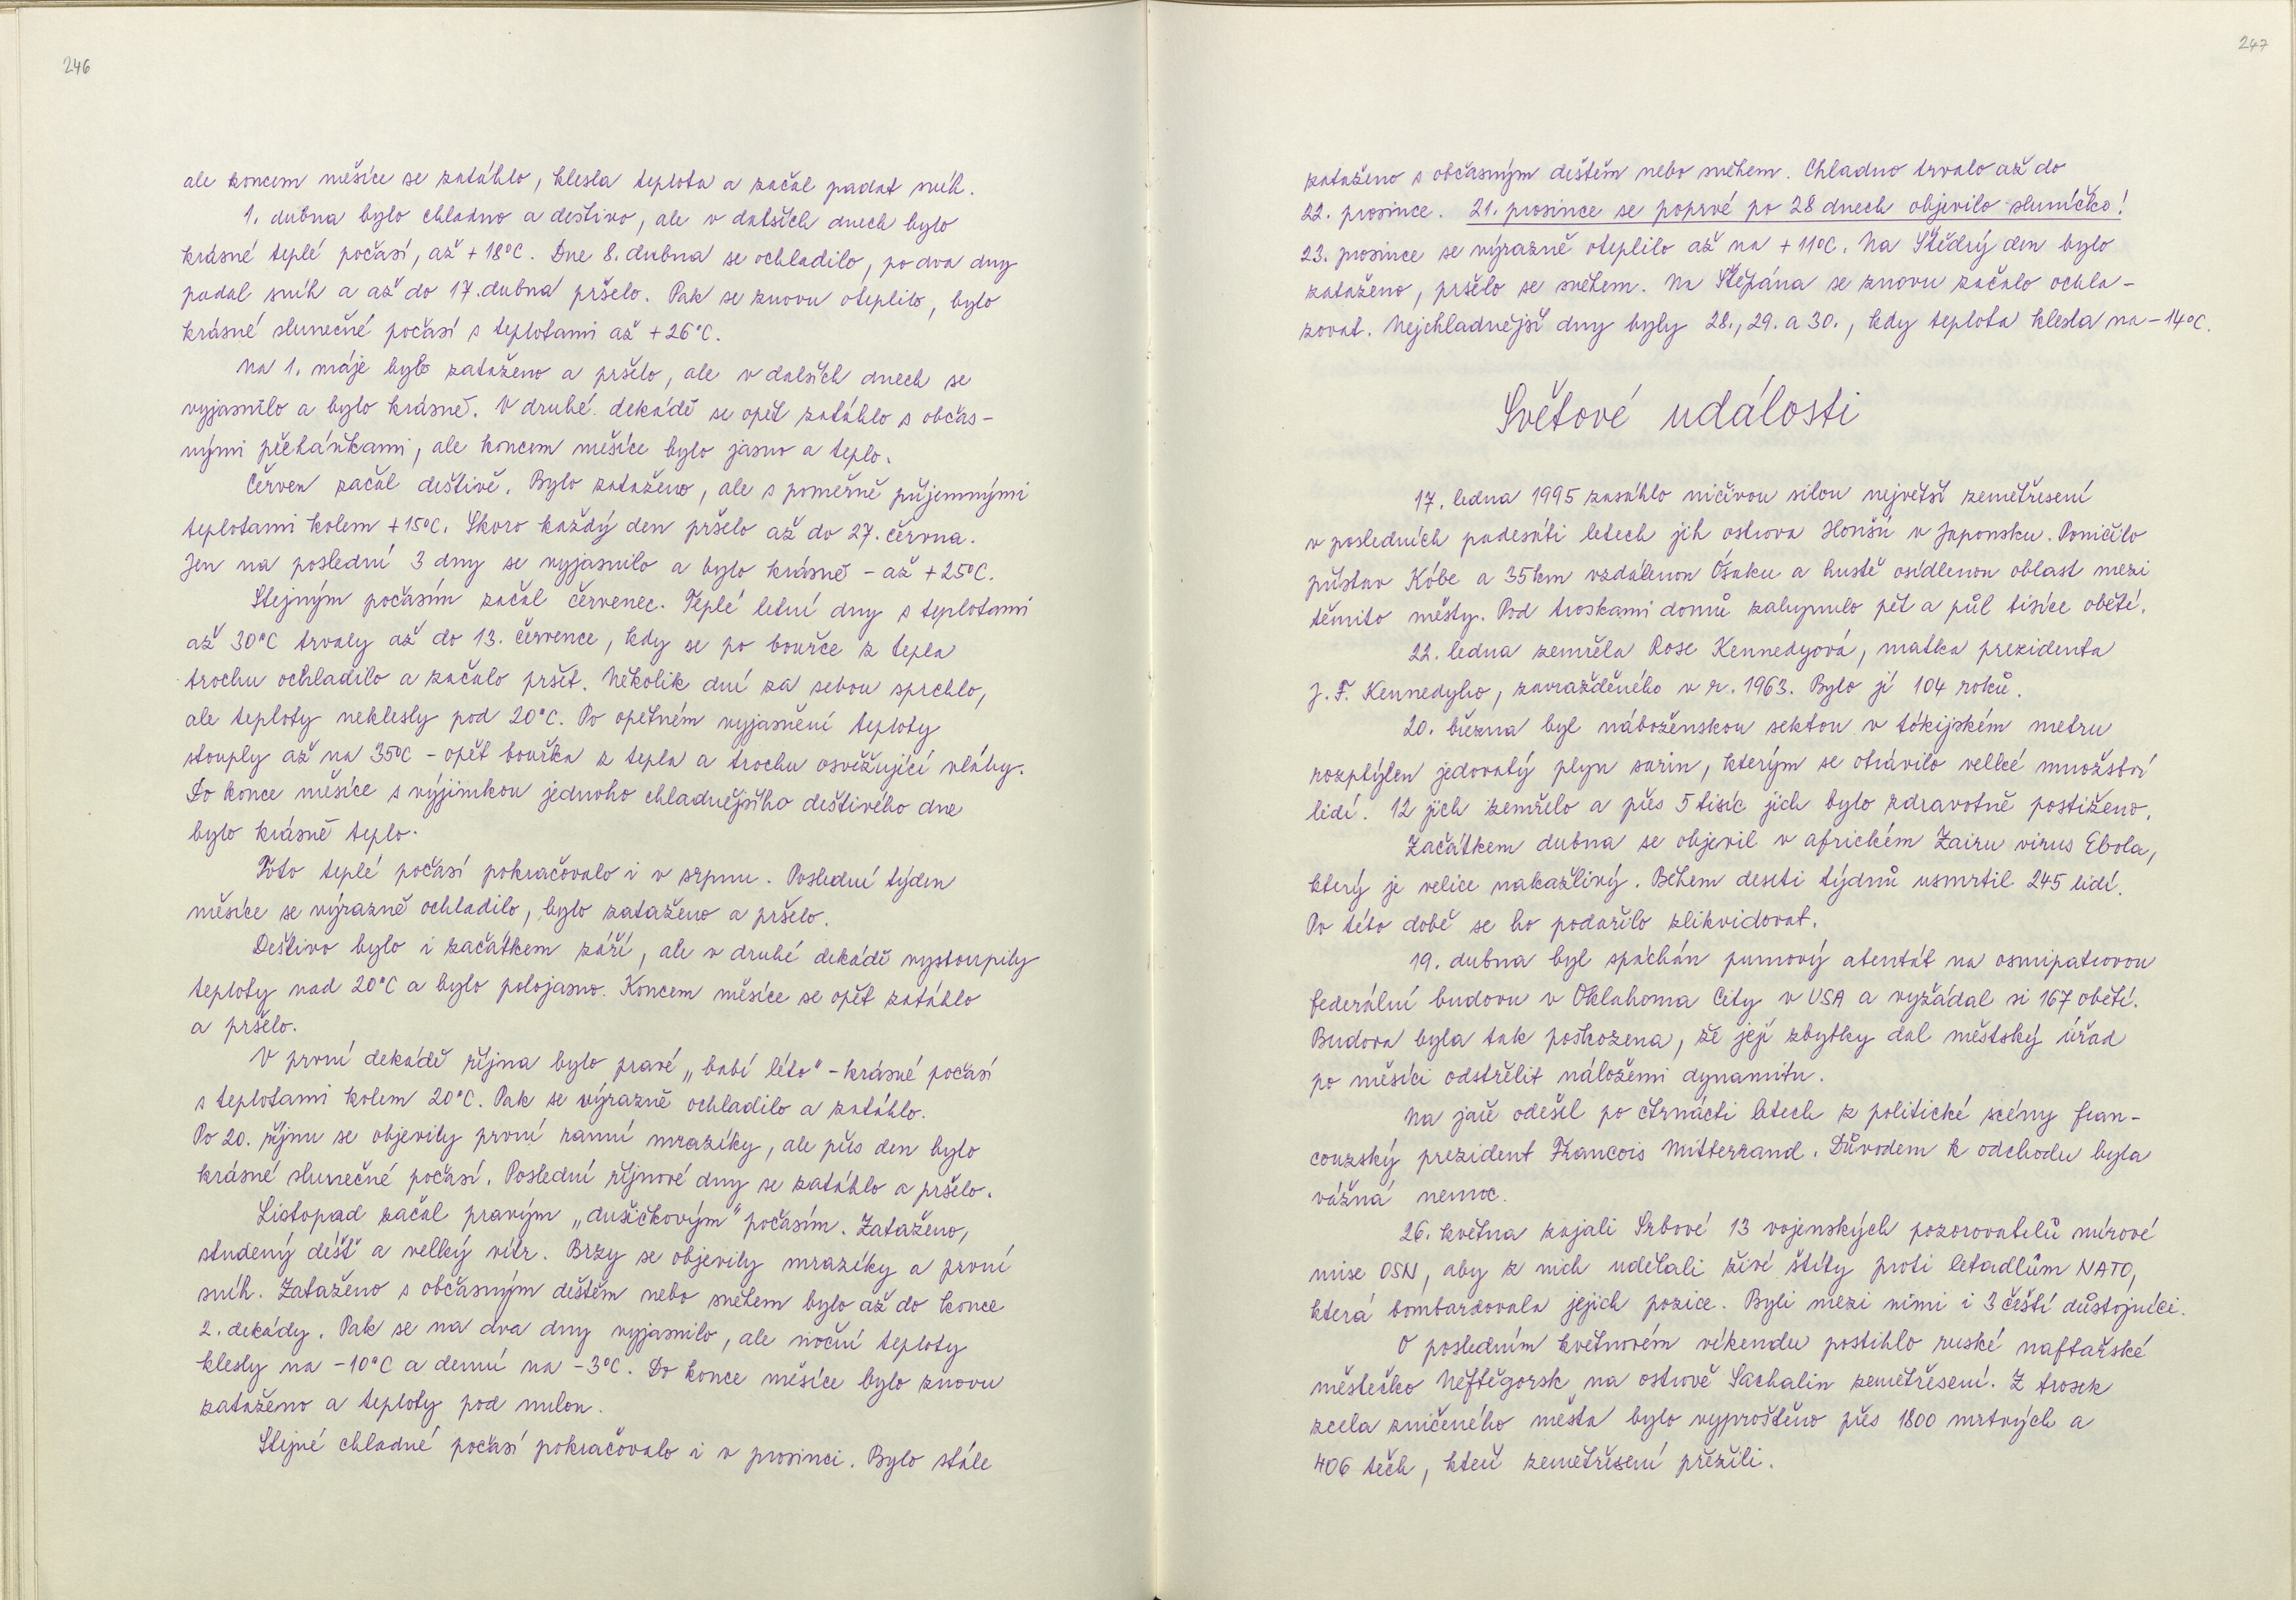 246
ale koncem měsíce se zatáhlo, klesla teplota a začal padat sníh.
1. dubna bylo chladno a deštivo, ale v dalších dnech bylo
krásné teplé počasí, až +18°C. Dne 8. dubna se ochladilo, po dva dny
padal sníh a až do 17. dubna pršelo. Pak se znovu oteplilo, bylo
krásné slunečné počasí s teplotami až +26°C.
Na 1. máje bylo zataženo a pršelo, ale v dalších dnech se
vyjasnilo a bylo krásně. V druhé dekádě se opět zatáhlo s občas-
nými přeháňkami, ale koncem měsíce bylo jasno a teplo.
Červen začal deštivě. Bylo zataženo, ale s poměrně příjemnými
teplotami kolem +15°C. Skoro každý den pršelo až do 27. června.
Jen na poslední 3 dny se vyjasnilo a bylo krásně - až +25°C.
Stejným počasím začal červenec. Teplé letní dny s teplotami
až 30°C trvaly až do 13. července, kdy se po bouřce z tepla
trochu ochladilo a začalo pršet. Několik dní za sebou sprchlo,
ale teploty neklesly pod 20°C. Po opětném vyjasnění teploty
stouply až na 35°C - opět bouřka z tepla a trochu osvěžující vláhy.
Do konce měsíce s výjimkou jednoho chladnějšího deštivého dne
bylo krásně teplo.
Toto teplé počasí pokračovalo i v srpnu. Poslední týden
měsíce se výrazně ochladilo, bylo zataženo a pršelo.
Deštivo bylo i začátkem září, ale v druhé dekádě vystoupily
teploty nad 20°C a bylo polojasno. Koncem měsíce se opět zatáhlo
a pršelo.
V první dekádě října bylo pravé „babí léto" - krásné počasí
s teplotami kolem 20°C. Pak se výrazně ochladilo a zatáhlo.
Po 20. říjnu se objevily první ranní mrazíky, ale přes den bylo
krásné slunečné počasí. Poslední říjnové dny se zatáhlo a pršelo.
Listopad začal pravým „dušičkovým" počasím. Zataženo,
studený déšť a velký vítr. Brzy se objevily mrazíky a první
sníh. Zataženo s občasným deštěm nebo sněhem bylo až do konce
2. dekády. Pak se na dva dny vyjasnilo, ale noční teploty
klesly na -10°C a denní na -3°C. Do konce měsíce bylo znovu
zataženo a teploty pod nulou.
Stejné chladné počasí pokračovalo i v prosinci. Bylo stále
247
zataženo s občasným deštěm nebo sněhem. Chladno trvalo až do
22. prosince. 21. prosince se poprvé po 28 dnech objevilo sluníčko!
23. prosince se výrazně oteplilo až na +11°C. Na Štědrý den bylo
zataženo, pršelo se sněhem. Na Štěpána se znovu začalo ochla-
zovat. Nejchladnější dny byly 28., 29. a 30., kdy teplota klesla na -14°C.
Světové události
17. ledna 1995 zasáhlo ničivou silou největší zemětřesení
v posledních padesáti letech jih ostrova Honšú v Japonsku. Poničilo
přístav Kóbe a 35km vzdálenou Ósaku a hustě osídlenou oblast mezi
těmito městy. Pod troskami domů zahynulo pět a půl tisíce obětí.
22. ledna zemřela Rose Kennedyová, matka prezidenta
J. F. Kennedyho, zavražděného v r. 1963. Bylo jí 104 roků.
20. března byl náboženskou sektou v tókijském metru
rozptýlen jedovatý plyn sarin, kterým se otrávilo velké množství
lidí. 12 jich zemřelo a přes 5 tisíc jich bylo zdravotně postiženo.
Začátkem dubna se objevil v africkém Zairu virus Ebola,
který je velice nakažlivý. Během deseti týdnů usmrtil 245 lidí.
Po této době se ho podařilo zlikvidovat.
19. dubna byl spáchán pumový atentát na osmipatrovou
federální budovu v Oklahoma City v USA a vyžádal si 167 obětí.
Budova byla tak poškozena, že její zbytky dal městský úřad
po měsíci odstřelit náložemi dynamitu.
Na jaře odešel po čtrnácti letech z politické scény fran-
couzský prezident Francois Mitterrand. Důvodem k odchodu byla
vážná nemoc.
26. května zajali Srbové 13 vojenských pozorovatelů mírové
mise OSN, aby z nich udělali živé štíty proti letadlům NATO,
která bombardovala jejich pozice. Byli mezi nimi i 3 čeští důstojníci.
O posledním květnovém víkendu postihlo ruské naftařské
městečko Něftěgorsk na ostrově Sachalin zemětřesení. Z trosek
zcela zničeného města bylo vyproštěno přes 1800 mrtvých a
406 těch, kteří zemětřesení přežili.